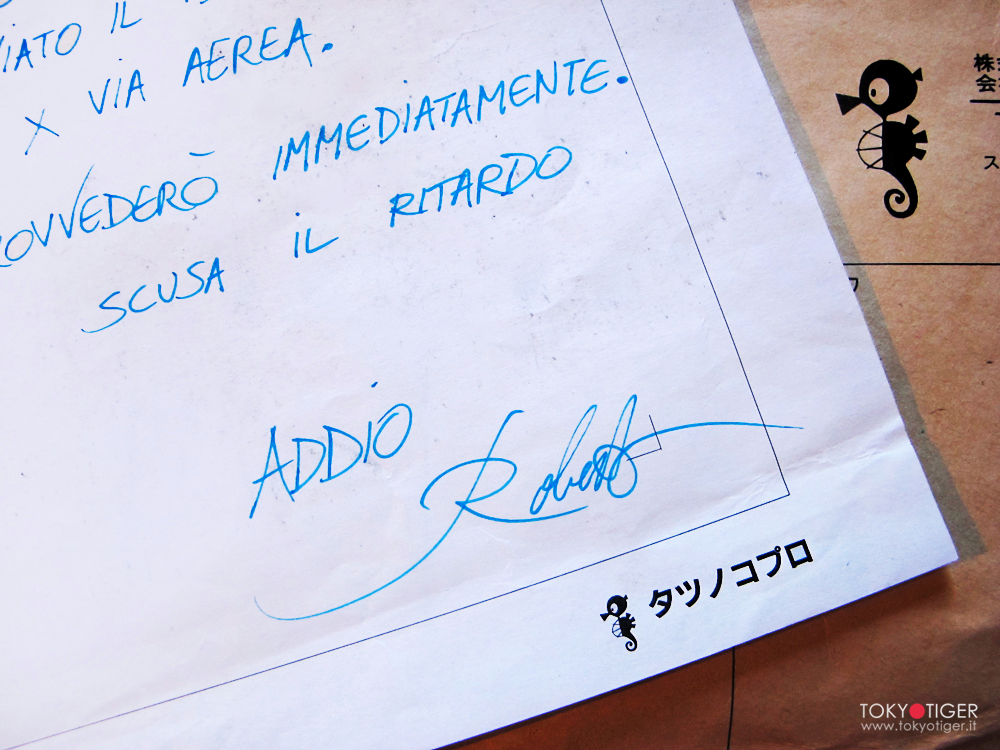 IL
X VIA AEREA.
IMMEDIATAMENTE.
SCUSA IL RITARDO
ADDIO
Robert
タツノコプロ
株
会
ス
TOKYO TIGER
www.tokyotiger.it